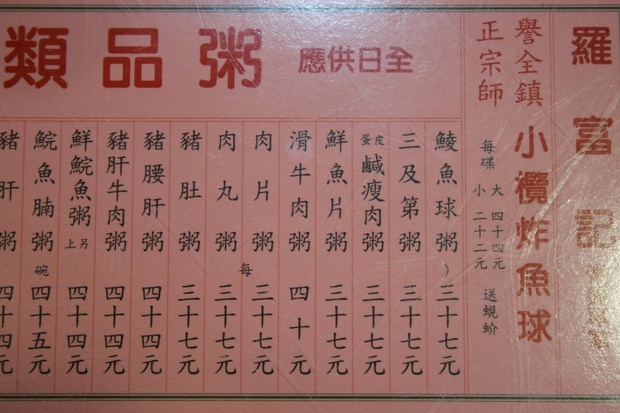 羅富記
譽全鎮
正宗師
小欖炸魚球
每碟 大 四十四元 送蜆蚧
小 二十二元
全日供應
粥品類
鯪魚球粥 三十七元
三及第粥 三十七元
皮蛋鹹瘦肉粥 三十七元
鮮魚片粥 三十七元
滑牛肉粥 四十元
肉片粥 三十七元
每
肉丸粥 三十七元
豬肚粥 三十七元
豬腰肝粥 四十四元
豬肝牛肉粥 四十四元
鮮鯇魚粥 另上 四十四元
鯇魚腩粥 碗 四十五元
豬肝粥 四十四元